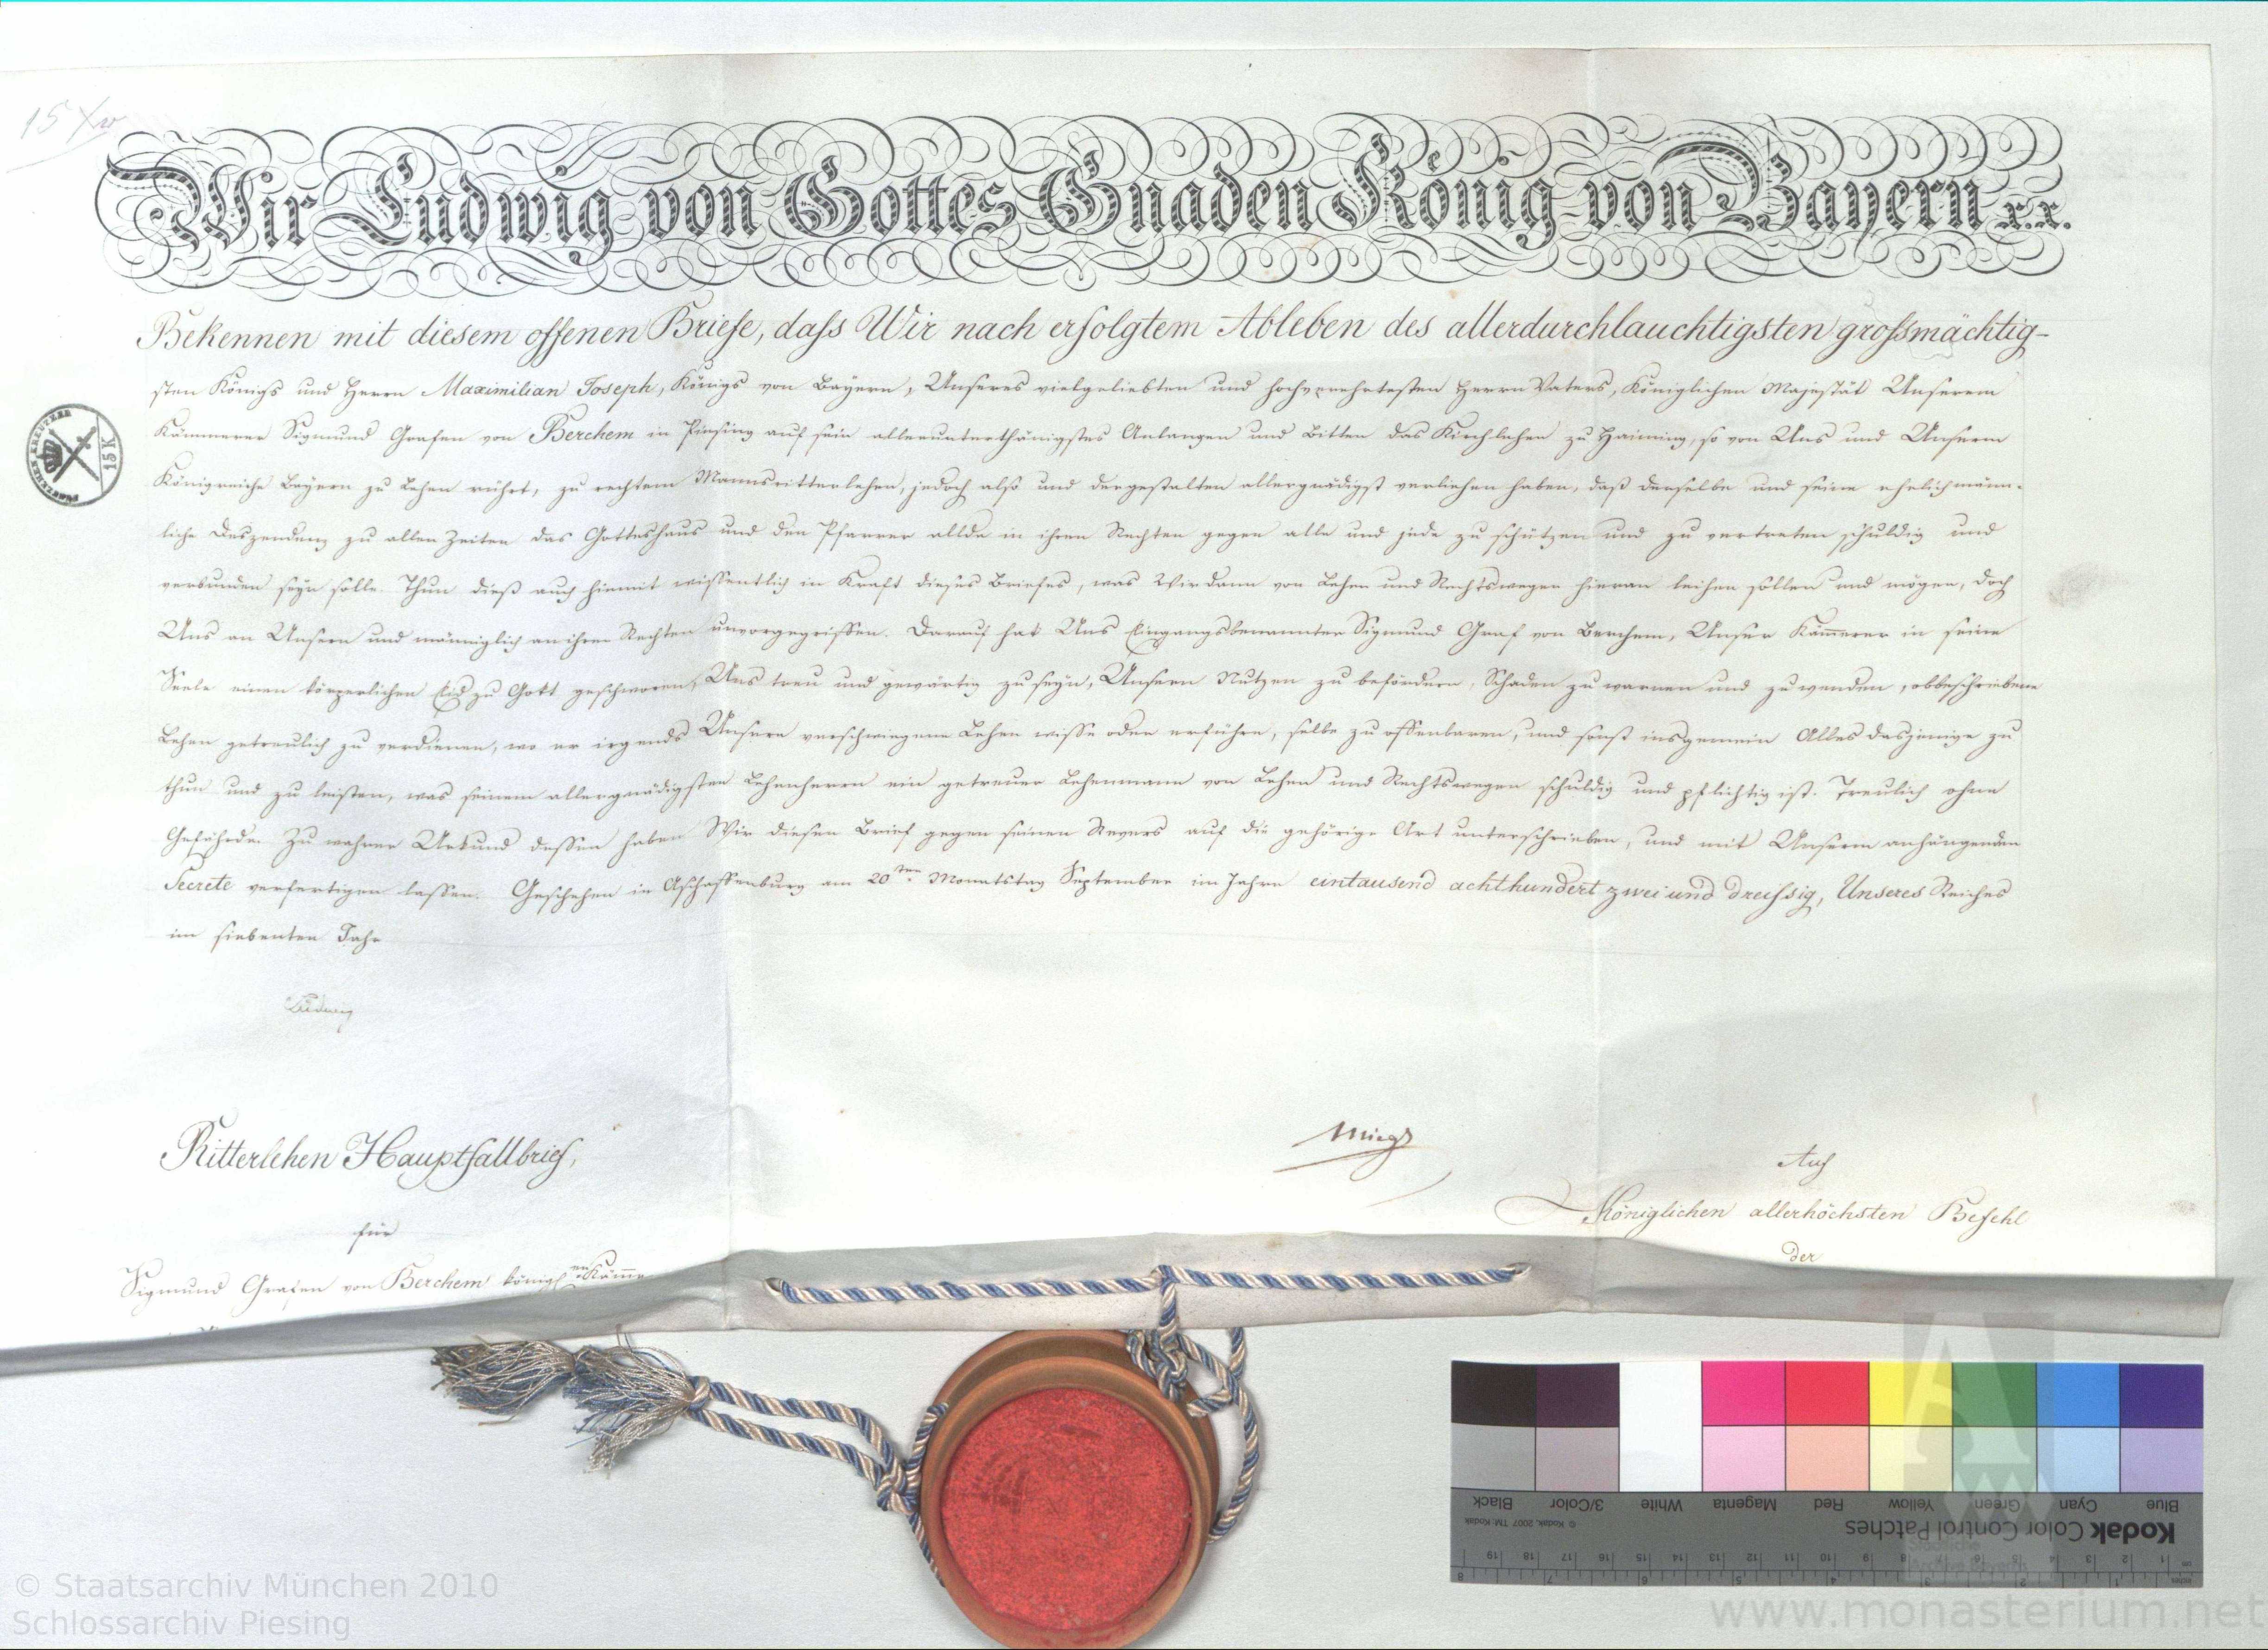 15 Xr
Wir Ludwig von Gottes Gnaden König von Bayern x.x.
Bekennen mit diesem offenen Briefe, dass Wir nach erfolgtem Ableben des allerdurchlauchtigsten grossmächtig-
sten Königs und Herrn Maximilian Joseph, Königs von Bayern, Unseres vielgeliebten und hochverehrtesten Herrn Vaters, Königlichen Majestät Unserem
Kämmerer Sigmund Grafen von Berchem in Piesing auf sein allerunterthänigstes Anlangen und Bitten das Kirchlehen zu Haiming, so von Uns und Unserm
Königreiche Bayern zu Lehen rührt, zu rechtem Mannsritterlehen, jedoch also und dergestalten allergnädigst verliehen haben, daß derselbe und seine ehelich männ-
liche Deszendenz zu allen Zeiten das Gotteshaus und den Pfarrer allda in ihren Rechten gegen alle und jede zu schützen und zu vertreten schuldig und
verbunden seyn solle. Thun dieß auch hiemit wissentlich in Kraft dieses Briefes, was Wir dann von Lehen und Rechtswegen hieran leihen sollen und mögen, doch
Uns an Unsern und männiglich an ihren Rechten unvorgegriffen. Darauf hat Uns Eingangsbenannter Sigmund Graf von Berchem, Unser Kämerer in seine
Seele einen körperlichen Eid zu Gott geschworen, Uns treu und gewärtig zu seyn, Unsern Nutzen zu befördern, Schaden zu warnen und zu wenden, obbeschriebene
Lehen getreulich zu verdienen, wo er irgends Unsere verschwiegene Lehen wisse oder erführe, selbe zu offenbaren, und sonst insgemein Alles dasjenige zu
thun und zu leisten, was seinem allergnädigsten Lehenherrn ein getreuer Lehenmann von Lehen und Rechtswegen schuldig und pflichtig ist. Treulich ohne
Gefährde. Zu wahrer Urkund dessen haben Wir diesen Brief gegen seinen Revers auf die gehörige Art unterschrieben, und mit Unserm anhängenden
Secrete verfertigen lassen. Geschehen in Aschaffenburg am 20ten Monatstag September im Jahre eintausend achthundert zwei und dreissig, Unseres Reiches
im siebenten Jahr
FÜNFZEHEN KREUZER
15 K
Ludwig
Mieg
Ritterlehen Hauptfallbrief,
für
Sigmund Grafen von Berchem königlen Käme
Auf
Königlichen allerhöchsten Befehl
der
Blue
Cyan
Green
Yellow
Red
Magenta
White
3/Color
Black
Kodak Color Control Patches
© Kodak, 2007 TM: Kodak
cm 1 2 3 4 5 6 7 8 9 10 11 12 13 14 15 16 17 18 19
inches 1 2 3 4 5 6 7 8
Staatliche
Archive Bayerns
© Staatsarchiv München 2010
Schlossarchiv Piesing
www.monasterium.net